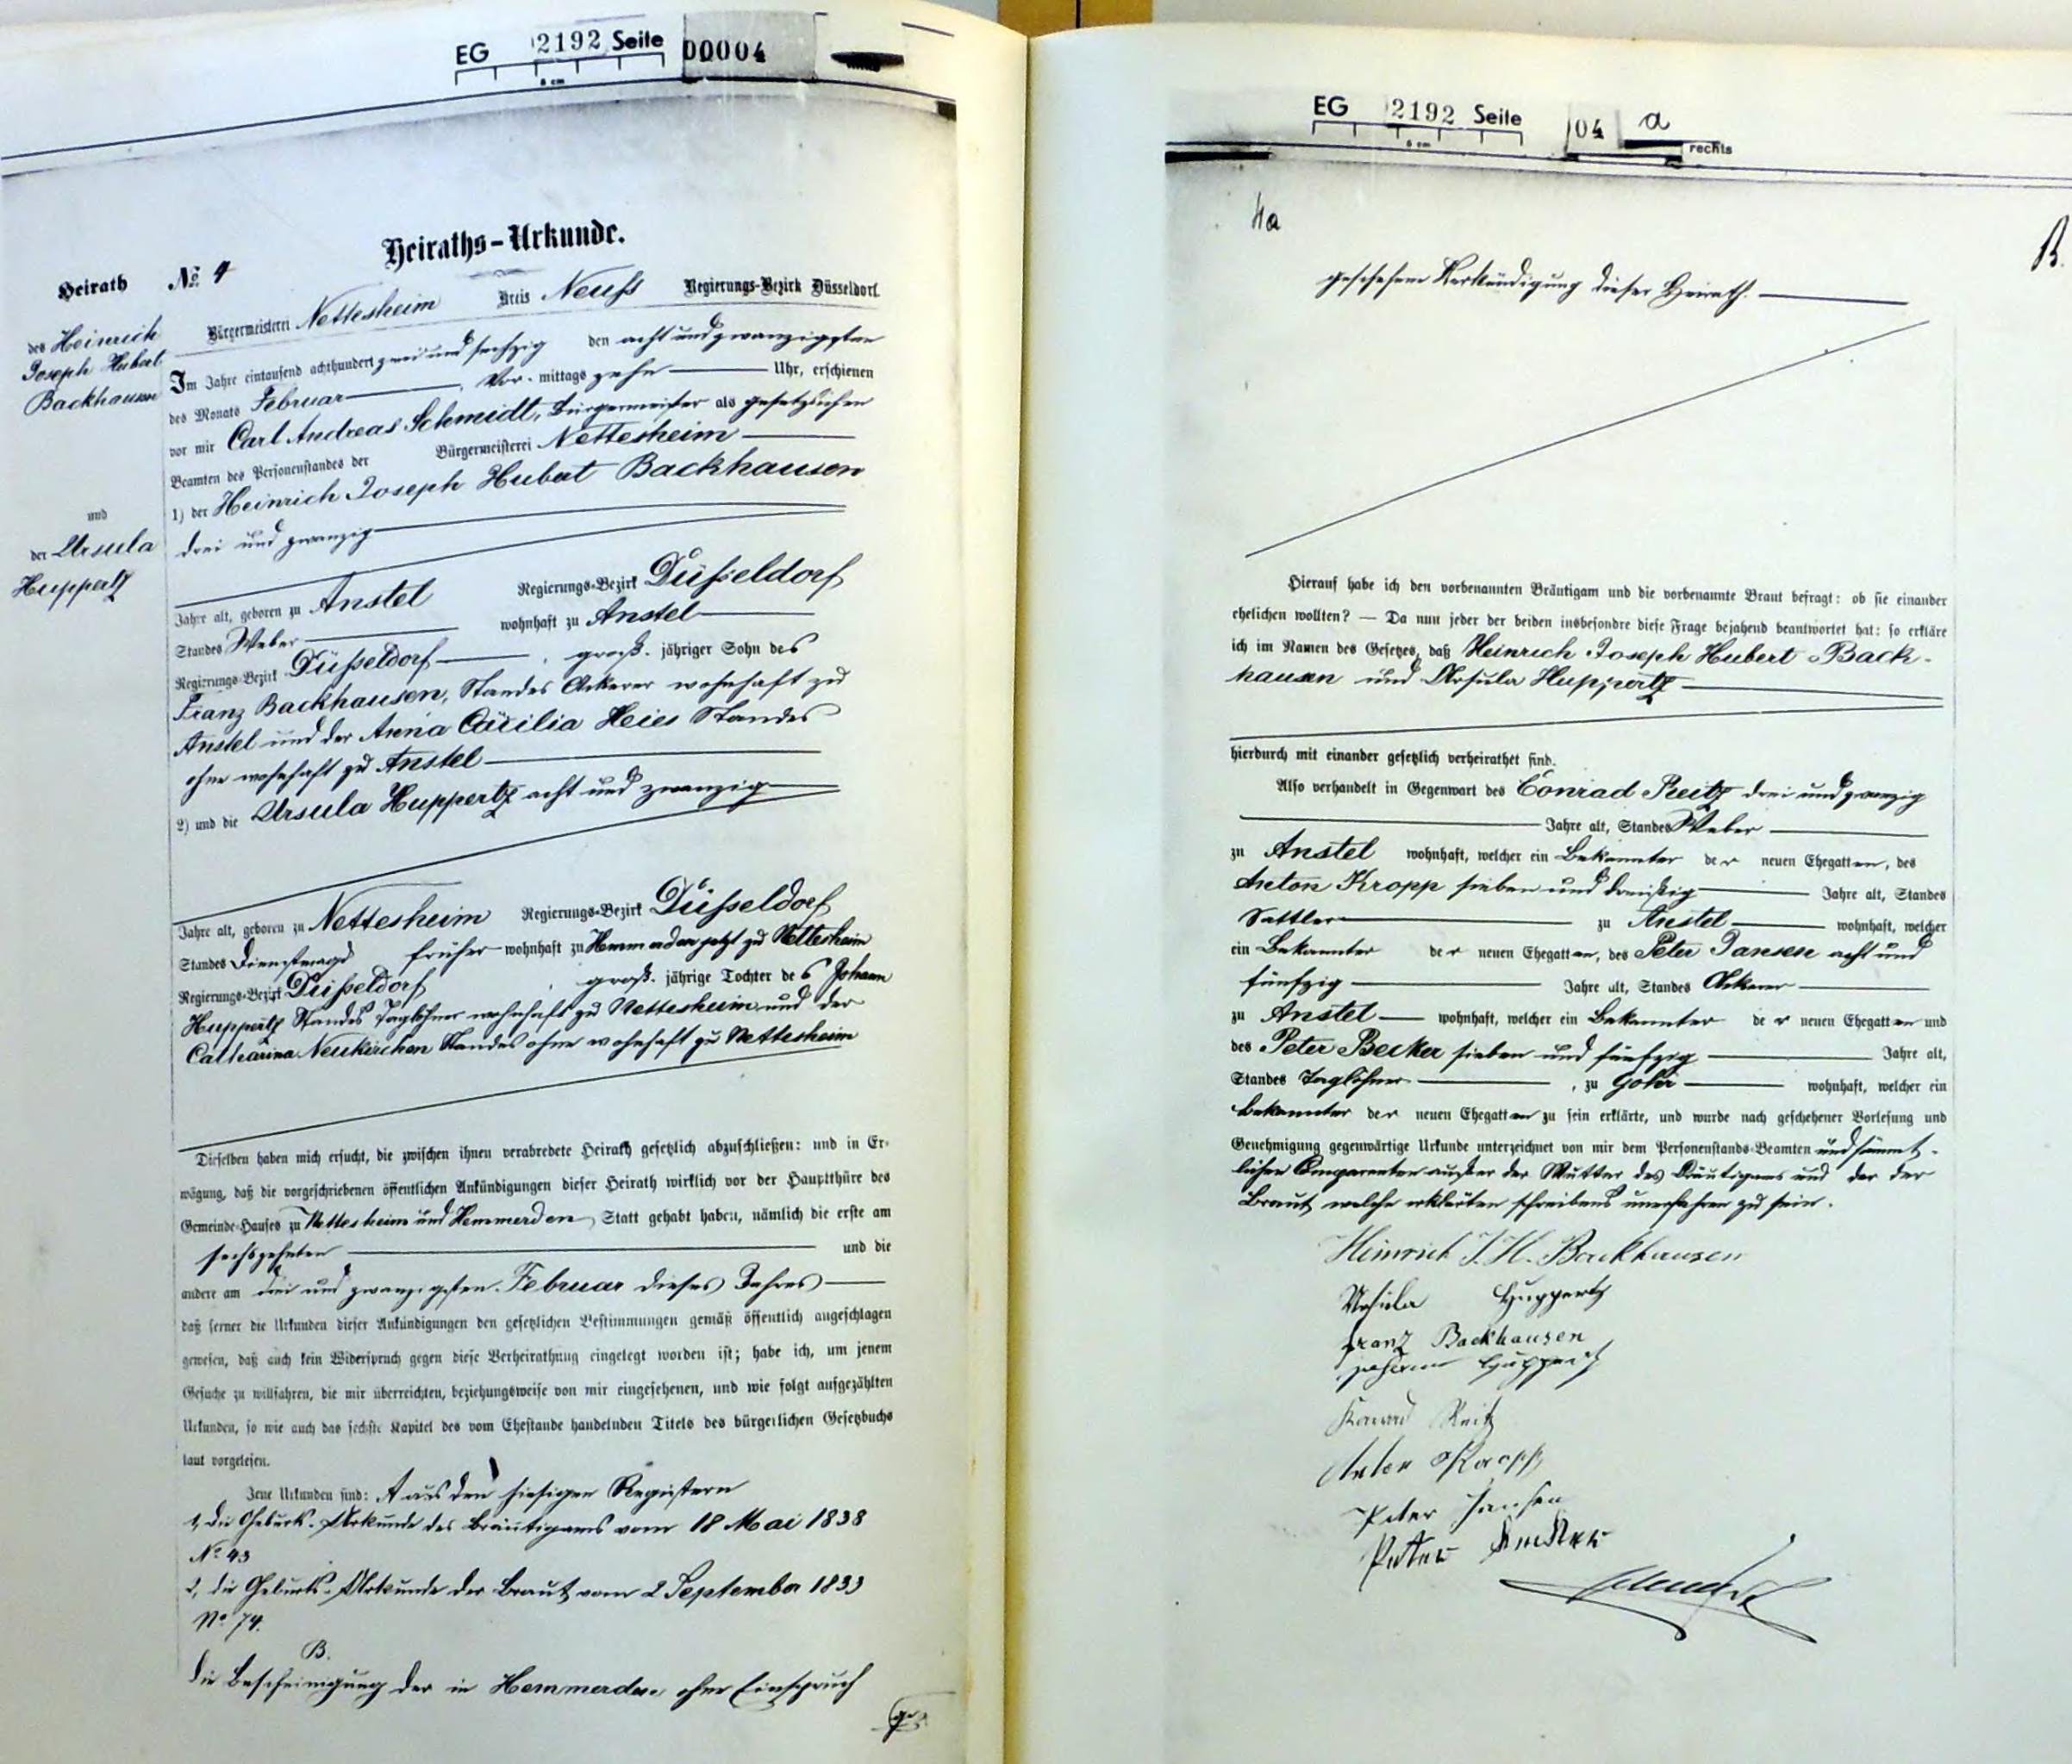 EG 2192 Seite 00004
6 cm
Heiraths-Urkunde.
Heirath № 4
des Heinrich
Joseph Hubert
Backhausen
und
der Ursula
Huppertz
Bürgermeisterei Nettesheim Kreis Neuß Regierungs-Bezirk Düsseldorf.
Im Jahre eintausend achthundert zwei und sechzig den acht und zwanzigsten
des Monats Februar, Vor-mittags zehn Uhr, erschienen
vor mir Carl Andreas Schmidt, Bürgermeister als gesetzlichen
Beamten des Personenstandes der Bürgermeisterei Nettesheim
1) der Heinrich Joseph Hubert Backhausen
drei und zwanzig
Jahre alt, geboren zu Anstel Regierungs-Bezirk Düsseldorf
Standes Weber wohnhaft zu Anstel
Regierungs-Bezirk Düsseldorf, groß-jähriger Sohn des
Franz Backhausen, Standes Ackerer wohnhaft zu
Anstel und der Anna Cäcilia Heies Standes
ohne wohnhaft zu Anstel
2) und die Ursula Huppertz acht und zwanzig
Jahre alt, geboren zu Nettesheim Regierungs-Bezirk Düsseldorf
Standes Dienstmagd früher wohnhaft zu Hemmerden jetzt zu Nettesheim
Regierungs-Bezirk Düsseldorf, groß-jährige Tochter des Johann
Huppertz Standes Taglöhner wohnhaft zu Nettesheim und der
Catharina Neukirchen Standes ohne wohnhaft zu Nettesheim
Dieselben haben mich ersucht, die zwischen ihnen verabredete Heirath gesetzlich abzuschließen: und in Er-
wägung, daß die vorgeschriebenen öffentlichen Ankündigungen dieser Heirath wirklich vor der Hauptthüre des
Gemeinde-Hauses zu Nettesheim und Hemmerden, Statt gehabt haben, nämlich die erste am
sechszehnten und die
andere am drei und zwanzigsten Februar dieses Jahres
daß ferner die Urkunden dieser Ankündigungen den gesetzlichen Bestimmungen gemäß öffentlich angeschlagen
gewesen, daß auch kein Widerspruch gegen diese Verheirathung eingelegt worden ist; habe ich, um jenem
Gesuche zu willfahren, die mir überreichten, beziehungsweise von mir eingesehenen, und wie folgt aufgezählten
Urkunden, so wie auch das sechste Kapitel des vom Ehestande handelnden Titels des bürgerlichen Gesetzbuchs
laut vorgelesen.
Jene Urkunden sind: A aus den hiesigen Registern
1, die Geburts-Urkunde des Bräutigams vom 18 Mai 1838
№ 43
2, die Geburts-Urkunde der Braut vom 2 September 1833
№ 74.
B.
die Bescheinigung der in Hemmerden ohne Einspruch
EG 2192 Seite 04 a
6 cm
rechts
4a
B.
geschehene Verkündigung dieser Heirath.
Hierauf habe ich den vorbenannten Bräutigam und die vorbenannte Braut befragt: ob sie einander
ehelichen wollten? — Da nun jeder der beiden insbesondre diese Frage bejahend beantwortet hat: so erkläre
ich im Namen des Gesetzes, daß Heinrich Joseph Hubert Back-
hausen und Ursula Huppertz
hierdurch mit einander gesetzlich verheirathet sind.
Also verhandelt in Gegenwart des Conrad Reitz drei und zwanzig
Jahre alt, Standes Weber
zu Anstel wohnhaft, welcher ein Bekannter der neuen Ehegatten, des
Anton Kropp sieben und dreißig Jahre alt, Standes
Sattler zu Anstel wohnhaft, welcher
ein Bekannter der neuen Ehegatten, des Peter Jansen acht und
fünfzig Jahre alt, Standes Ackerer
zu Anstel wohnhaft, welcher ein Bekannter der neuen Ehegatten und
des Peter Becker sieben und fünfzig Jahre alt,
Standes Taglöhner, zu Gohr wohnhaft, welcher ein
Bekannter der neuen Ehegatten zu sein erklärte, und wurde nach geschehener Vorlesung und
Genehmigung gegenwärtige Urkunde unterzeichnet von mir dem Personenstands-Beamten und sämmt-
lichen Comparenten außer der Mutter des Bräutigams und der der
Braut welche erklärten schreibens unerfahren zu sein.
Heinrich J. H. Backhausen
Ursula Huppertz
Franz Backhausen
Johann Huppertz
Konrad Reitz
Anton Kropp
Peter Jansen
Peter Becker
Schmidt